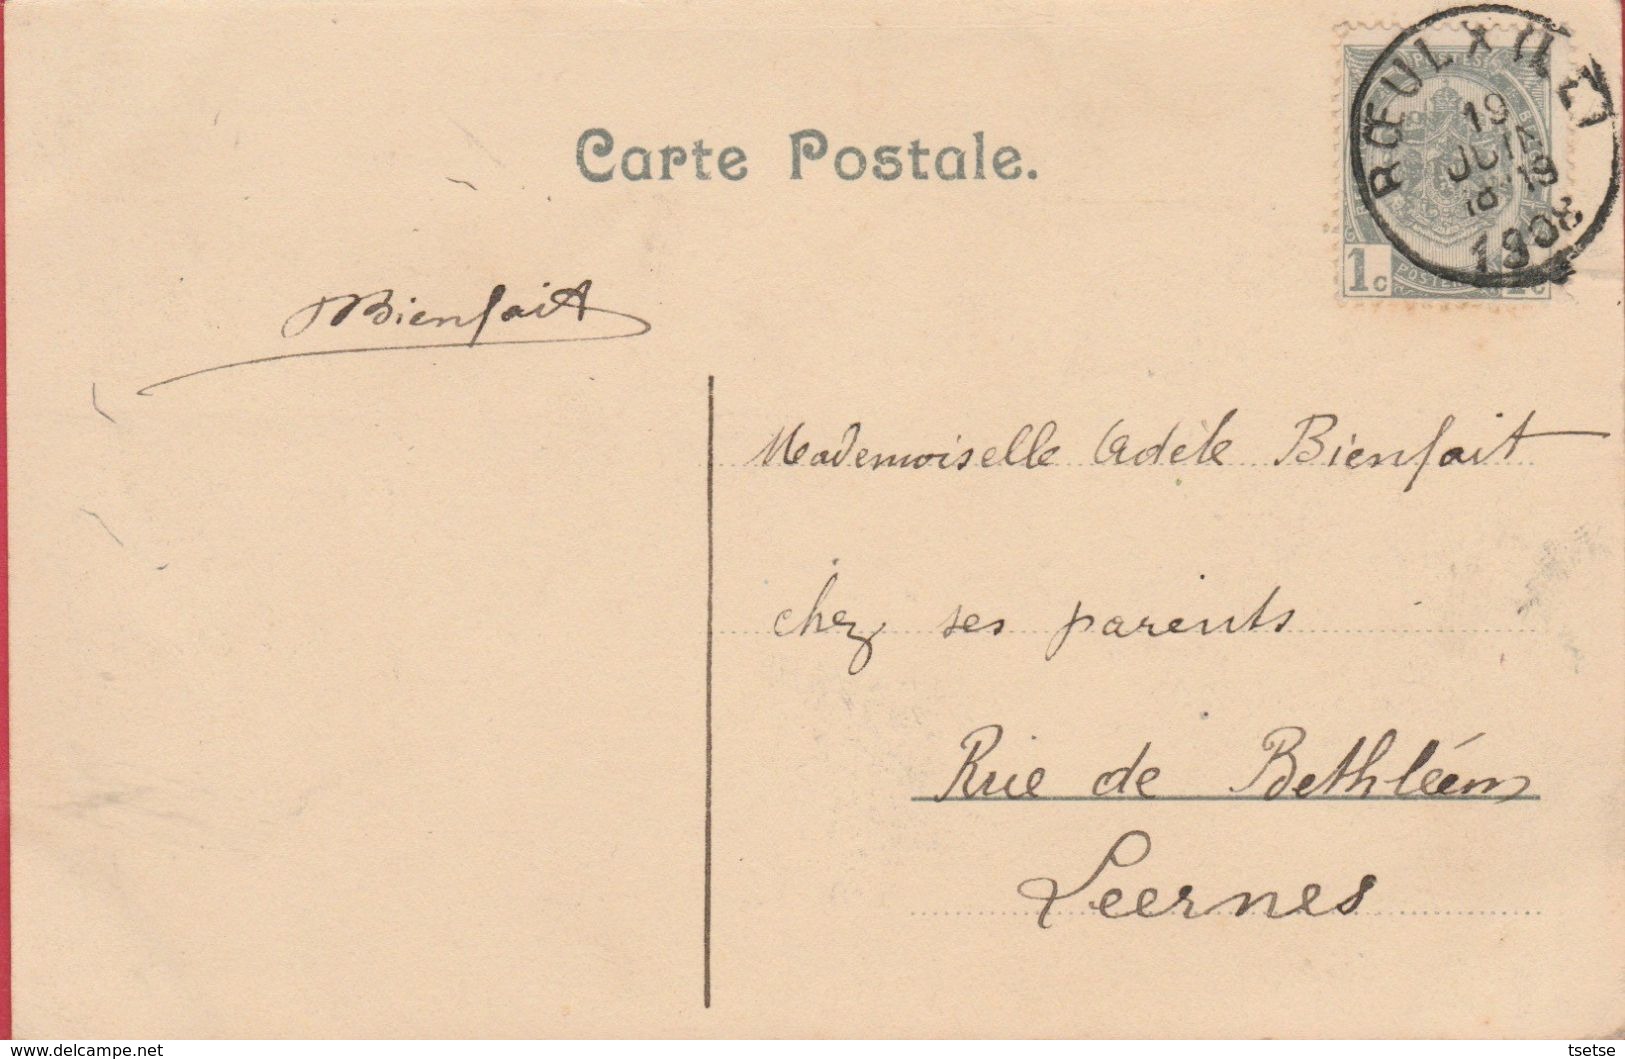 Carte Postale.
RŒULX (LE)
19
JUIL
18-19
1908
POSTES
1c
Bienfait
Mademoiselle Adèle Bienfait
chez ses parents
Rue de Bethléem
Leernes
www.delcampe.net
tsetse